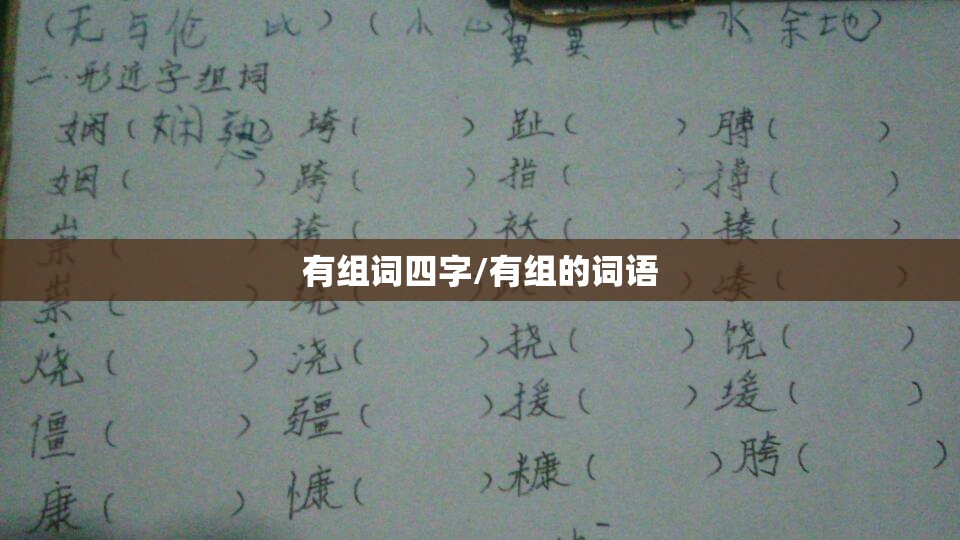 (无与伦比)(小心翼翼)( 水余地)
二.形近字组词
娴(娴熟) 垮( ) 趾( ) 膊( )
姻( ) 跨( ) 指( ) 搏( )
崇( ) 挎( ) 袄( ) 揍( )
有组词四字/有组的词语
祟( ) 绕( ) ( ) 嗪( )
烧( ) 浇( ) 挠( ) 饶( )
僵( ) 疆( ) 援( ) 缓( )
康( ) 慷( ) 糠( ) 胯( )